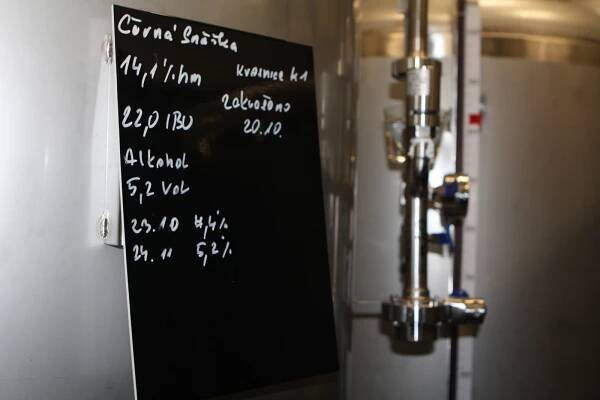 Černá Sněžka
14,1 % hm kvasnice k1
22,0 IBU zakvašeno
20.10.
Alkohol
5,2 vol
23.10 4,4 %
24.10 5,2 %